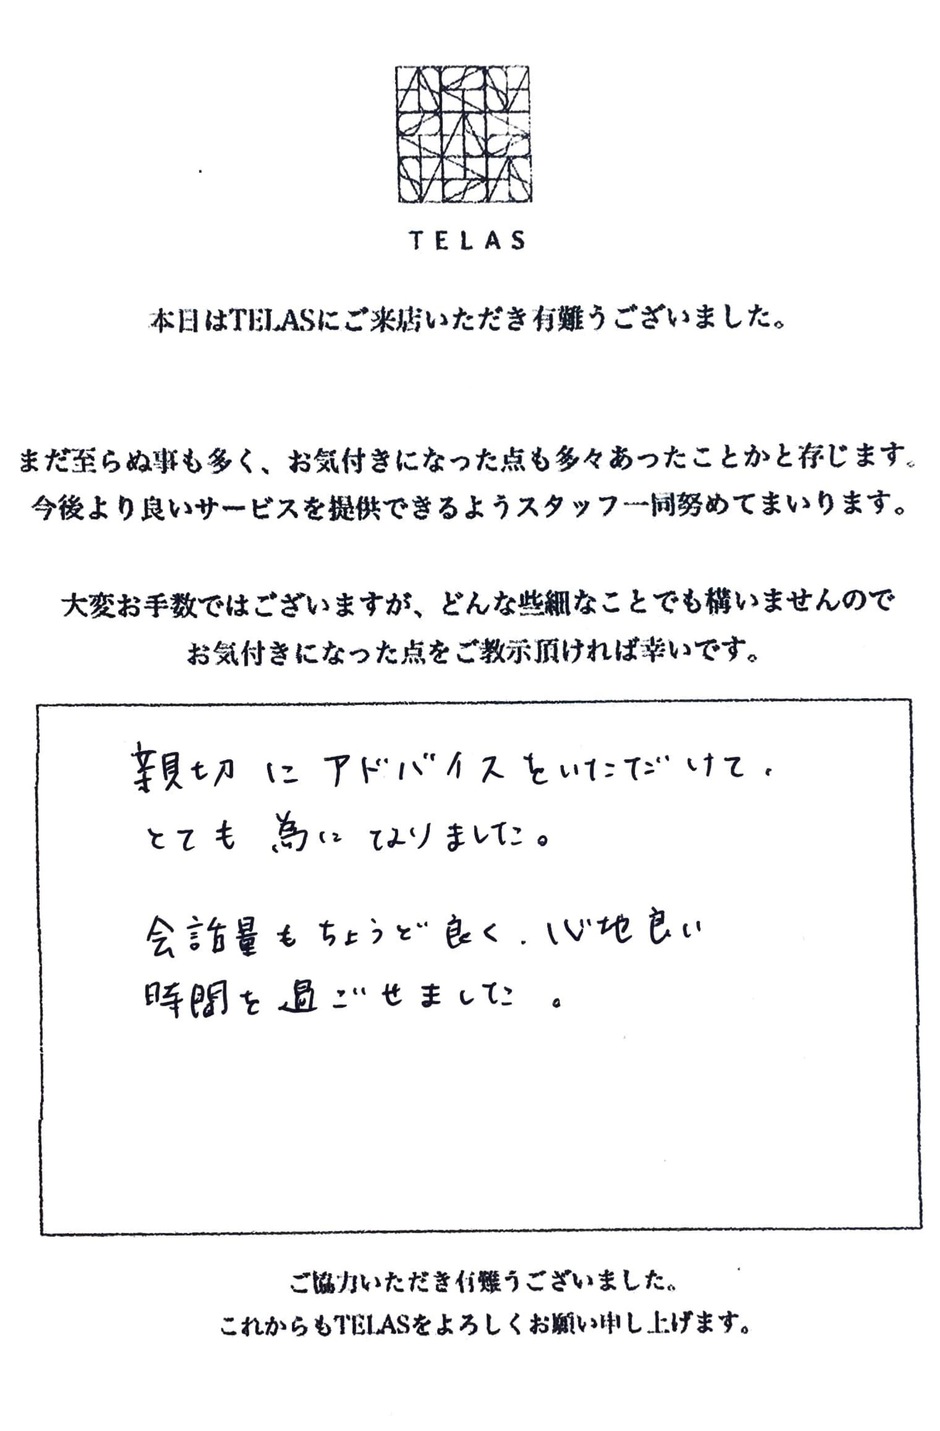 TELAS
本日はTELASにご来店いただき有難うございました。
まだ至らぬ事も多く、お気付きになった点も多々あったことかと存じます。
今後より良いサービスを提供できるようスタッフ一同努めてまいります。
大変お手数ではございますが、どんな些細なことでも構いませんので
お気付きになった点をご教示頂ければ幸いです。
親切にアドバイスをいただけて、
とても為になりました。
会話量もちょうど良く、心地良い
時間を過ごせました。
ご協力いただき有難うございました。
これからもTELASをよろしくお願い申し上げます。